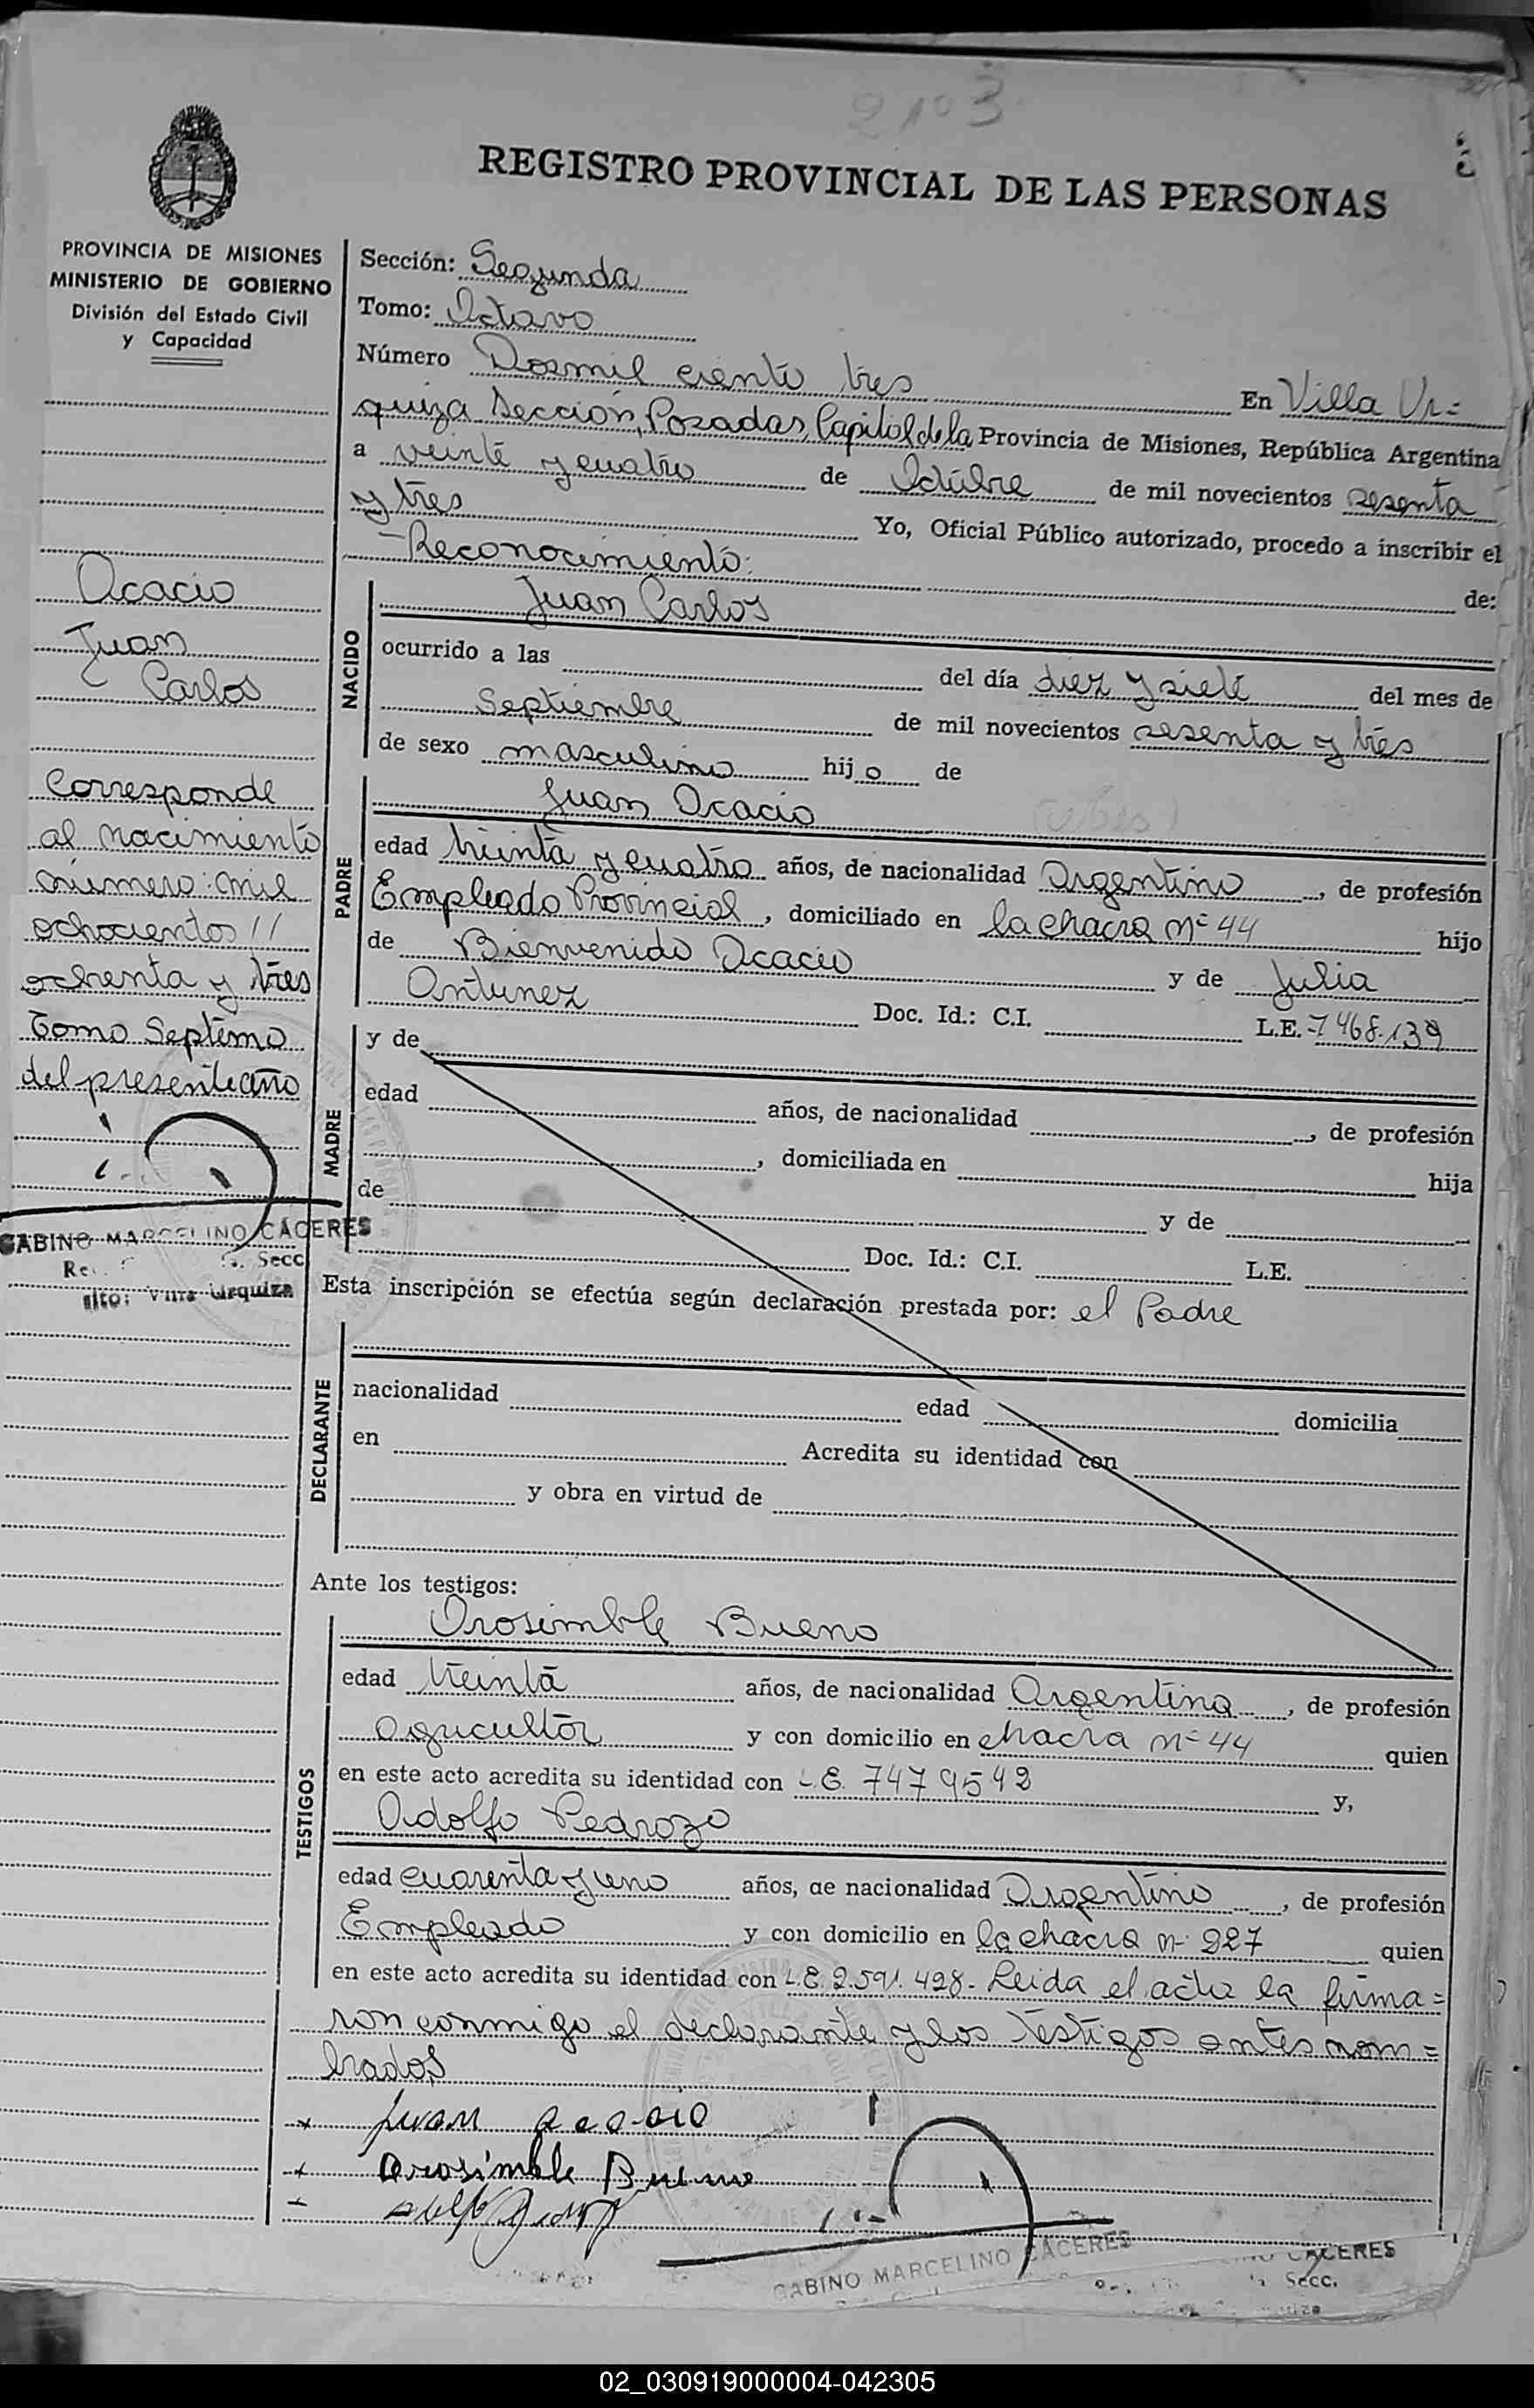 2103
REGISTRO PROVINCIAL DE LAS PERSONAS
PROVINCIA DE MISIONES
MINISTERIO DE GOBIERNO
División del Estado Civil
y Capacidad
Acacio
Juan
Carlos
Corresponde
al nacimiento
número: mil
ochocientos //
ochenta y tres
Tomo Septimo
del presente año
GABINO MARCELINO CÁCERES
Secc
Villa Urquiza
Sección: Segunda
Tomo: Octavo
Número Dosmil ciento tres En Villa Ur=
quiza Sección, Posadas, Capital de la Provincia de Misiones, República Argentina
a veinte y cuatro de Octubre de mil novecientos sesenta
y tres Yo, Oficial Público autorizado, procedo a inscribir el
-Reconocimiento: de:
NACIDO
Juan Carlos
ocurrido a las del día diez y siete del mes de
Septiembre de mil novecientos sesenta y tres
de sexo masculino hijo de
PADRE
Juan Acacio
edad treinta y cuatro años, de nacionalidad Argentino, de profesión
Empleado Provincial, domiciliado en la chacra nº 44 hijo
de Bienvenido Acacio y de Julia
Antunez Doc. Id.: C.I. L.E. 7468.139
MADRE
y de
edad años, de nacionalidad , de profesión
, domiciliada en hija
de y de
Doc. Id.: C.I. L.E.
Esta inscripción se efectúa según declaración prestada por: el Padre
DECLARANTE
nacionalidad edad domicilia
en Acredita su identidad con
y obra en virtud de
Ante los testigos:
TESTIGOS
Orosimble Bueno
edad treinta años, de nacionalidad Argentina, de profesión
agricultor y con domicilio en chacra nº 44 quien
en este acto acredita su identidad con L.E. 7479542 y,
Adolfo Pedrozo
edad cuarenta y uno años, de nacionalidad Argentino, de profesión
Empleado y con domicilio en la chacra nº 227 quien
en este acto acredita su identidad con L.E. 2.591.428- Leida el acta la firma=
ron conmigo el declarante y los testigos antes nom=
brados
Juan Acacio
Orosimble Bueno
GABINO MARCELINO CÁCERES
CÁCERES
Secc.
02_030919000004-042305